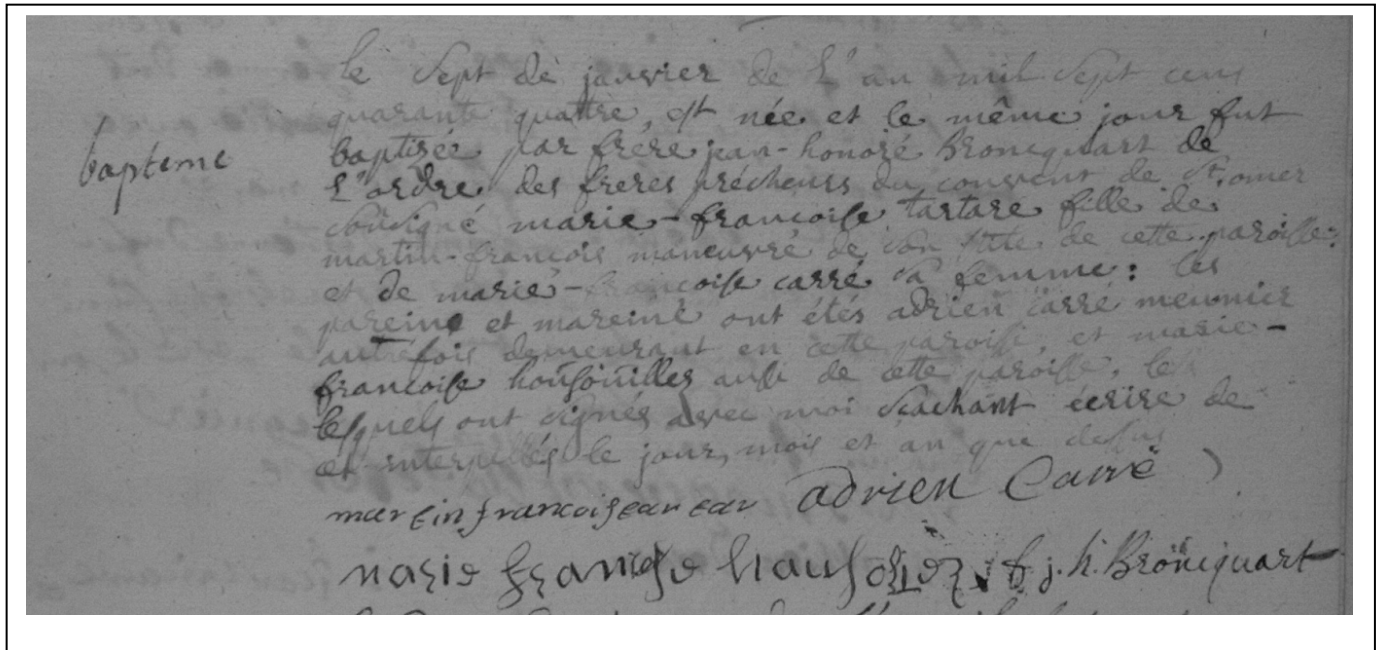 baptême
le sept de janvier de l'an mil sept cens
quarante quattre, est née et le même jour fut
baptisée par frère jean-honoré Broncquart de
l'ordre des freres précheurs du couvent de St. omer
soussigné marie-françoise tartare fille de
martin-francois maneuvre de son stile de cette paroisse:
et de marie-francoise carré sa femme: les
pareins et mareine ont étés adrien carré meunier
autrefois demeurant en cette paroisse, et marie-
francoise aussi de cette paroisse, les
lesquels ont signés avec moi scachant écrire de
ce interpellés le jour, mois et an que dessus
martin francois adrien Carré
marie f. j. h. Broncquart